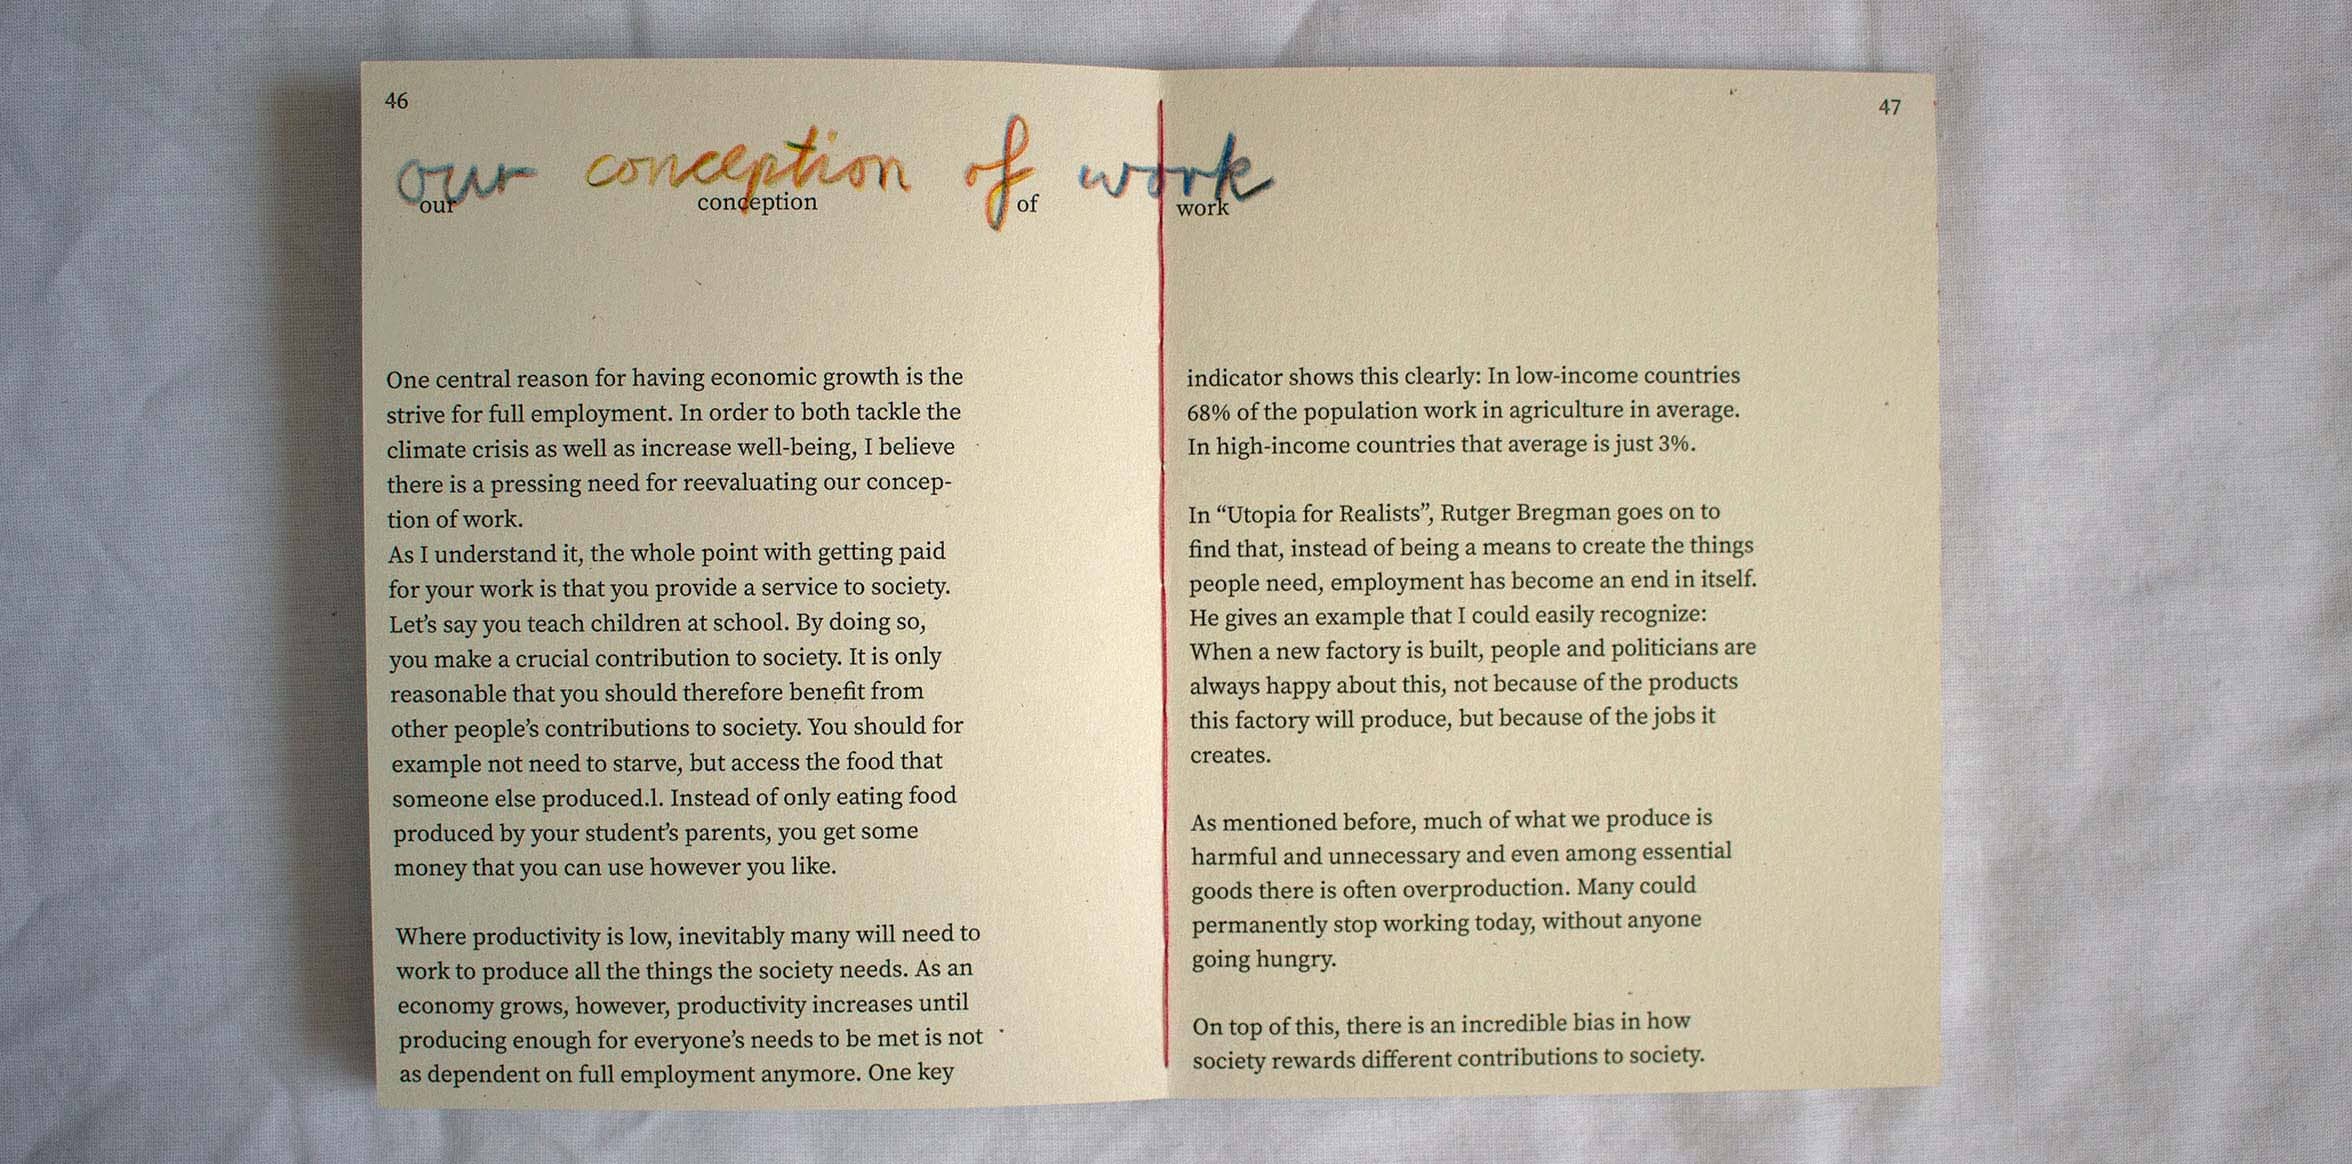 46
our conception of work
our conception of work
One central reason for having economic growth is the
strive for full employment. In order to both tackle the
climate crisis as well as increase well-being, I believe
there is a pressing need for reevaluating our concep-
tion of work.
As I understand it, the whole point with getting paid
for your work is that you provide a service to society.
Let’s say you teach children at school. By doing so,
you make a crucial contribution to society. It is only
reasonable that you should therefore benefit from
other people’s contributions to society. You should for
example not need to starve, but access the food that
someone else produced.l. Instead of only eating food
produced by your student’s parents, you get some
money that you can use however you like.
Where productivity is low, inevitably many will need to
work to produce all the things the society needs. As an
economy grows, however, productivity increases until
producing enough for everyone’s needs to be met is not
as dependent on full employment anymore. One key
47
indicator shows this clearly: In low-income countries
68% of the population work in agriculture in average.
In high-income countries that average is just 3%.
In “Utopia for Realists”, Rutger Bregman goes on to
find that, instead of being a means to create the things
people need, employment has become an end in itself.
He gives an example that I could easily recognize:
When a new factory is built, people and politicians are
always happy about this, not because of the products
this factory will produce, but because of the jobs it
creates.
As mentioned before, much of what we produce is
harmful and unnecessary and even among essential
goods there is often overproduction. Many could
permanently stop working today, without anyone
going hungry.
On top of this, there is an incredible bias in how
society rewards different contributions to society.